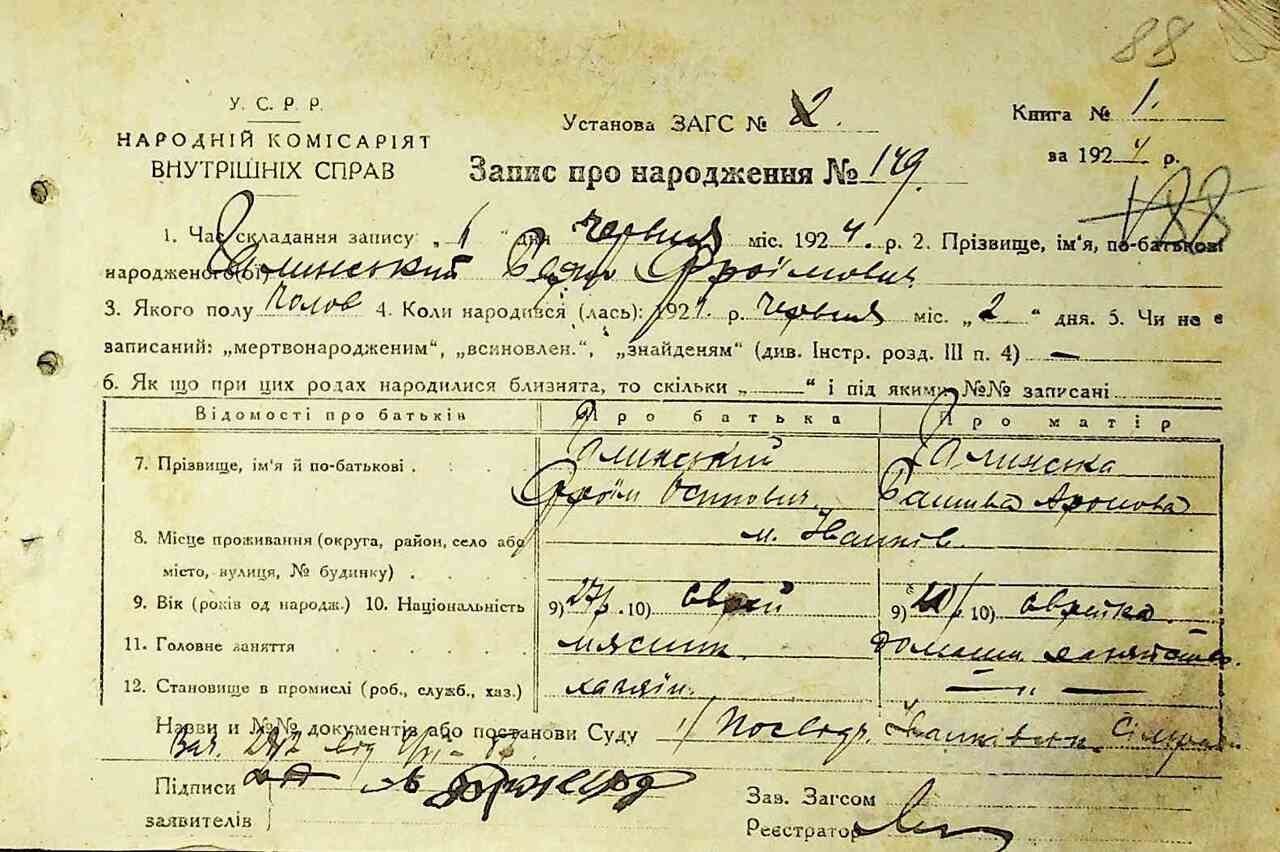 88
У. С. Р. Р.
НАРОДНІЙ КОМІСАРІЯТ
ВНУТРІШНІХ СПРАВ
Установа ЗАГС № 2.
Книга № 1.
за 1924 р.
Запис про народження № 149.
188
1. Час складання запису „ 6 “ дня червня міс. 1924. р. 2. Прізвище, ім'я, по-батькові
народженого(ої) Фроїмович
3. Якого полу чолов 4. Коли народився (лась): 1924. р. червня міс. „ 2 “ дня. 5. Чи не є
записаний: „мертвонародженим“, „всиновлен.“, „знайденям“ (див. Інстр. розд. III п. 4) —
6. Як що при цих родах народилися близнята, то скільки „ “ і під якими №№ записані
Відомості про батьків Про батька Про матір
7. Прізвище, ім'я й по-батькові
Фроїм Осипович Аронова
8. Місце проживання (округа, район, село або м. Іванків.
місто, вулиця, № будинку)
9. Вік (років од народж.) 10. Національність 9) 27 10) єврей 9) 10) єврейка
11. Головне заняття мясник. домашн. хазяйство.
12. Становище в промислі (роб., служб., хаз.) хазяїн. — „ —
Назви и №№ документів або постанови Суду 1/ Посвідч. Іванківськ.
Підписи
заявителів
Зав. Загсом
Реєстратор